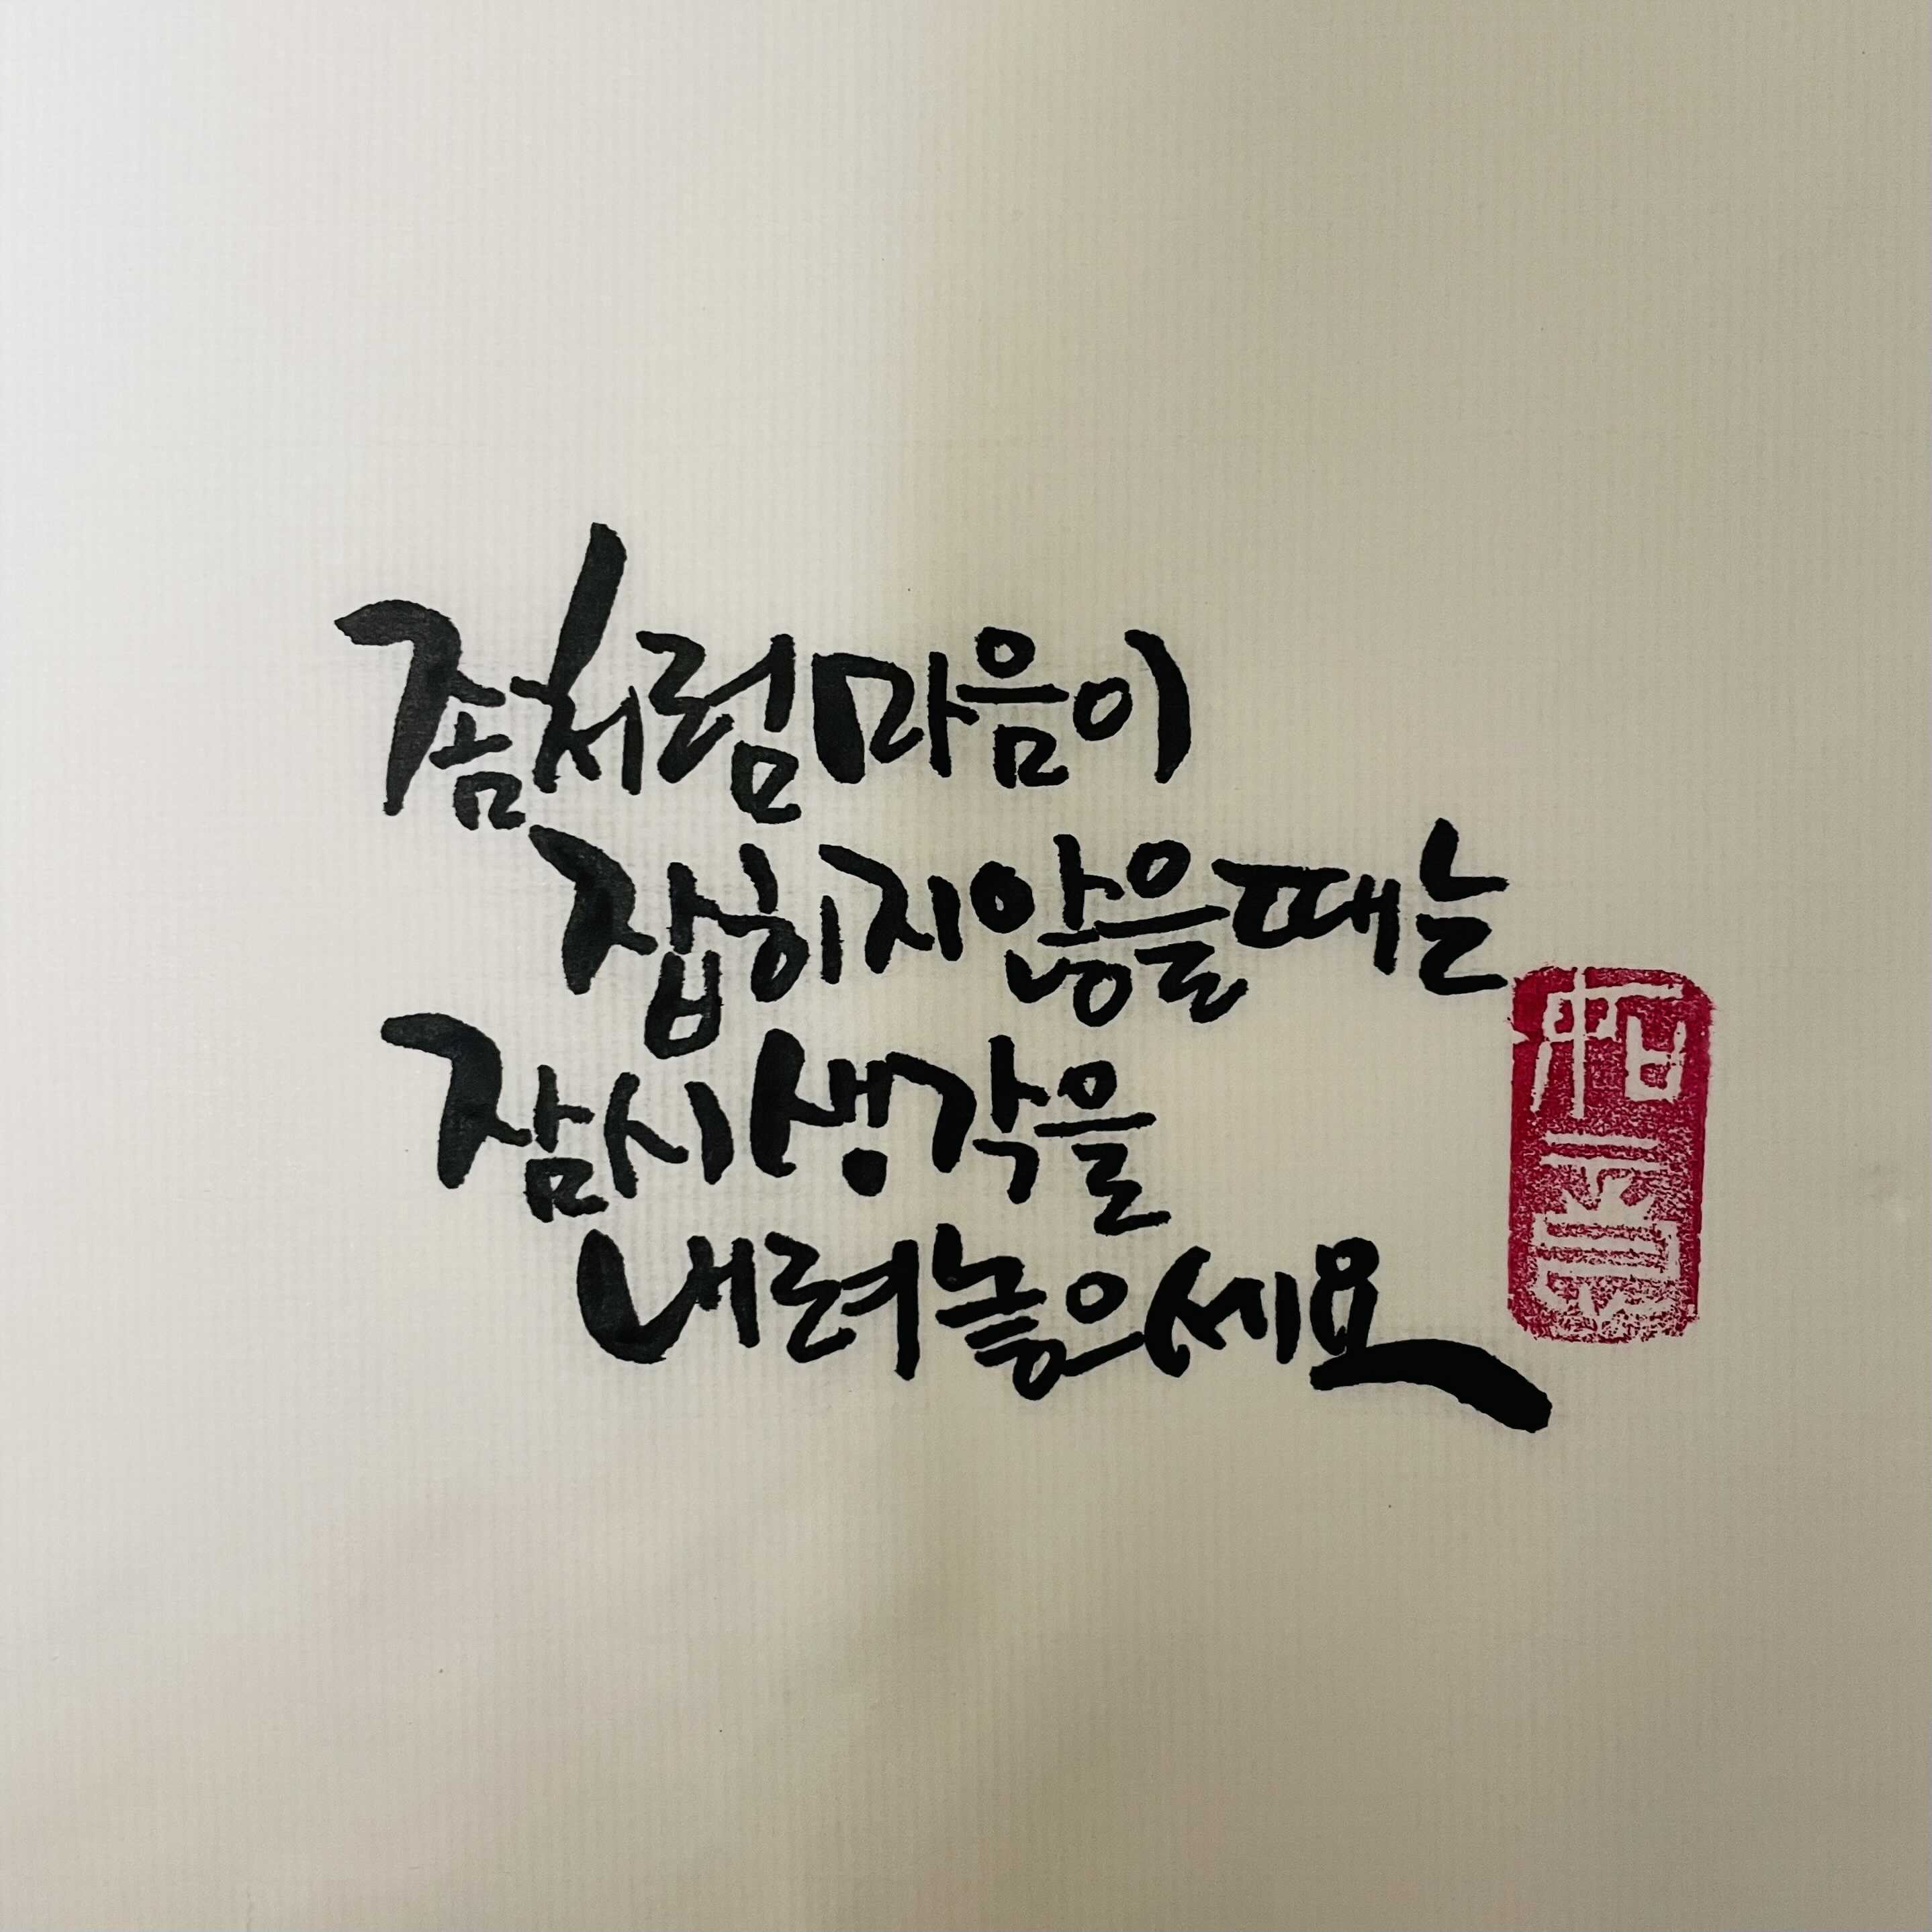 좀처럼 마음이
잡히지 않을 때는
잠시 생각을
내려놓으세요